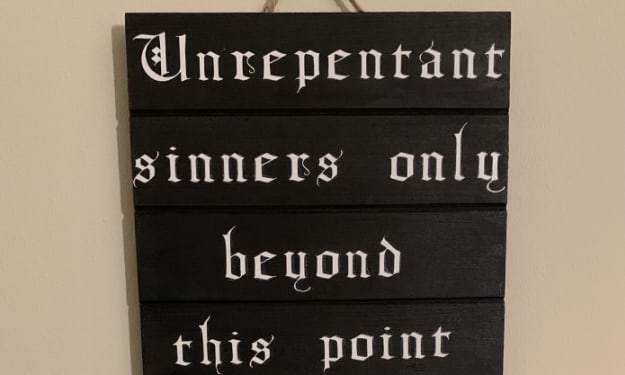 Unrepentant
sinners only
beyond
this point